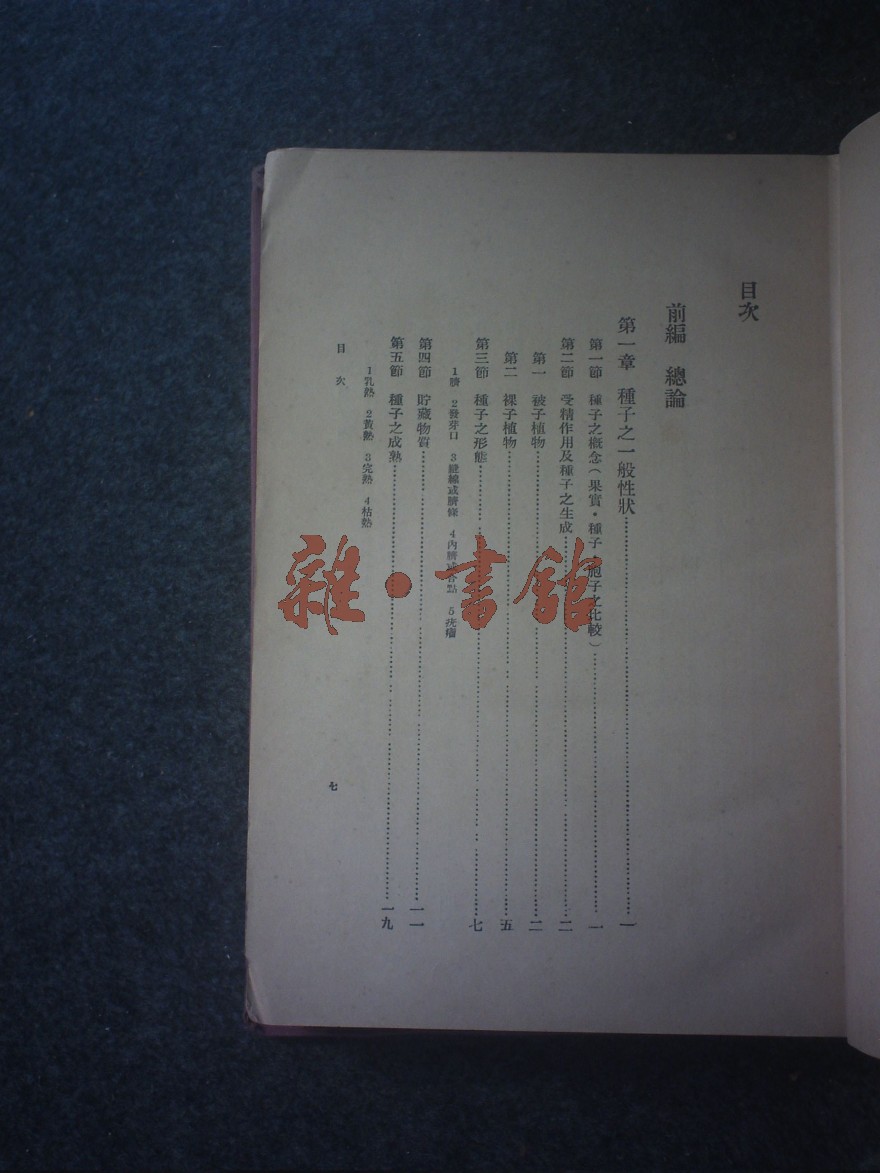 目次
前編 總論
第一章 種子之一般性狀……一
第一節 種子之概念(果實・種子 胞子之比較)……一
第二節 受精作用及種子之生成……二
第一 被子植物……二
第二 裸子植物……五
第三節 種子之形態……七
1臍 2發芽口 3縫線或臍條 4內臍或合點 5疣瘤
第四節 貯藏物質……一一
第五節 種子之成熟……一九
1乳熟 2黃熟 3完熟 4枯熟
目次 七
雜・書館